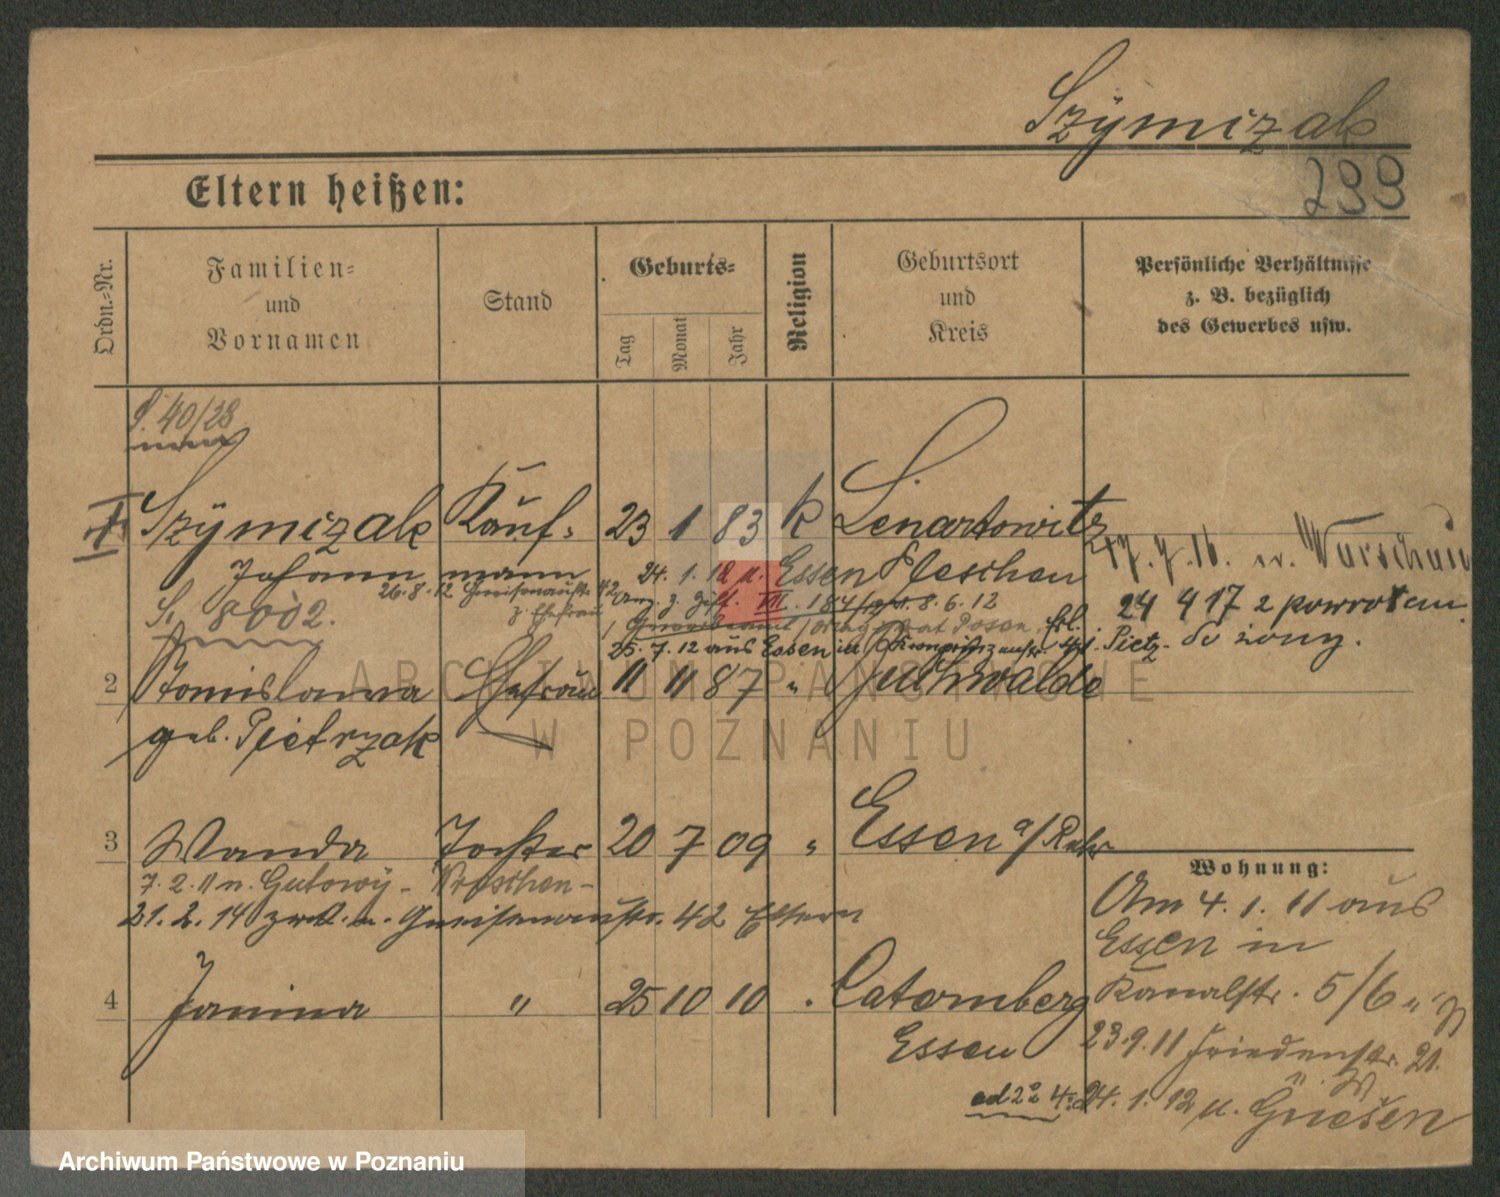 Szÿmizak
233
Eltern heißen:
Ordn.-Nr.
Familien-
und
Vornamen
Stand
Geburts-
Tag
Monat
Jahr
Religion
Geburtsort
und
Kreis
Persönliche Verhältnisse
z. B. bezüglich
des Gewerbes usw.
S. 40/28
Szÿmizak Kauf- 23 1 83 k Lenartowitz
Johann mann 24. 1. 12 n. Essen Pleschen
17. 7. 16. n. Warschau
26. 8. 12 Gneisenaustr. 42
z. Ehefrau
8. 6. 12
S. 8002.
24 4 17 z powrotem
do żony.
25. 7. 12 aus Essen in Kronprinzenstr.
2 Stanislawa Ehefrau 11 11 87 " Buchwalde
geb. Pietrzak
3 Wanda Tochter 20 7 09 " Essen a/Ruhr
7. 2. 11 n. Gutowÿ - Wreschen -
21. 2. 14 zur. n. Gneisenaustr. 42 Eltern
Wohnung:
Am 4. 1. 11 aus
Essen in
Kanalstr. 5/6
4 Janina " 25 10 10 " Caternberg
Essen
23. 9. 11 Friedenstr. 21.
ad 2 4. 24. 1. 12 n. Essen
ARCHIWUM PAŃSTWOWE
W POZNANIU
Archiwum Państwowe w Poznaniu